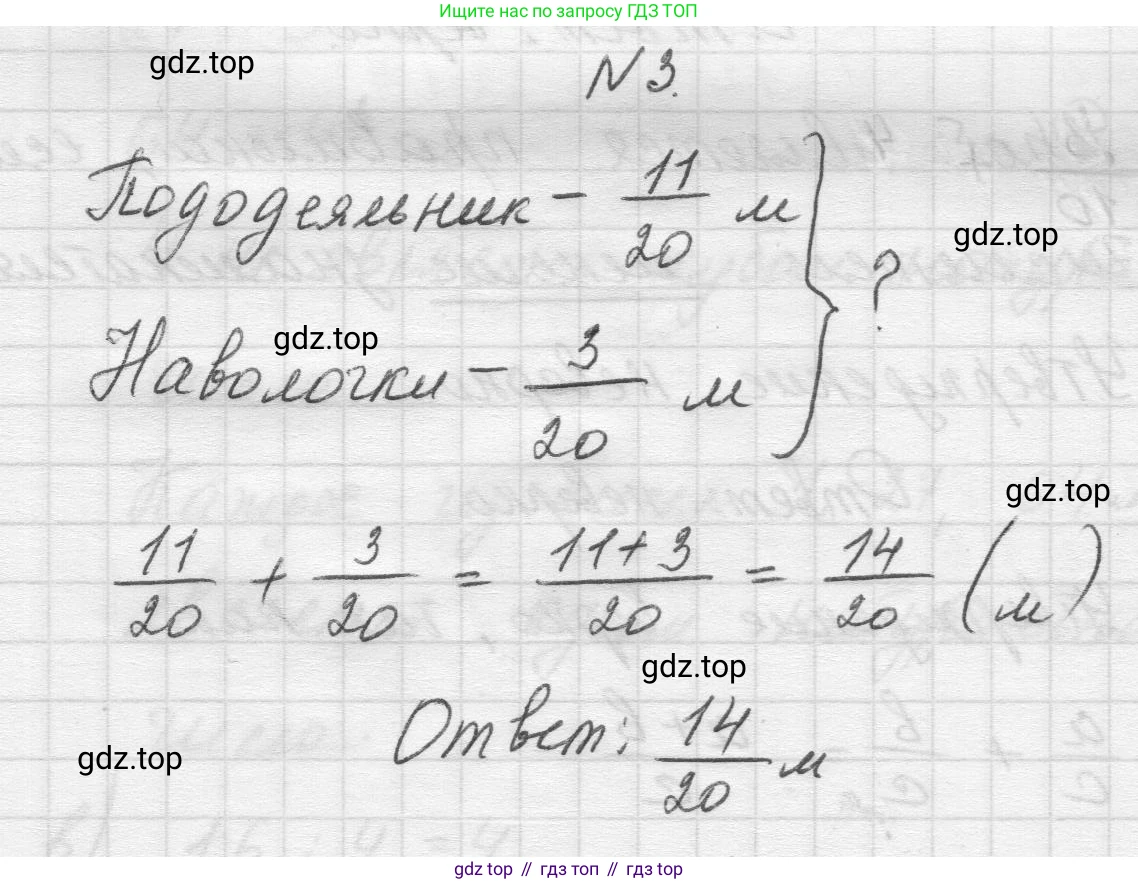 Ищите нас по запросу ГДЗ ТОП
gdz.top
N 3.
Пододеяльник - 11/20 м
gdz.top
} ?
gdz.top
Наволочки - 3/20 м
gdz.top
11/20 + 3/20 = (11+3)/20 = 14/20 (м)
gdz.top
Ответ: 14/20 м
gdz.top
gdz top // гдз топ // gdz top